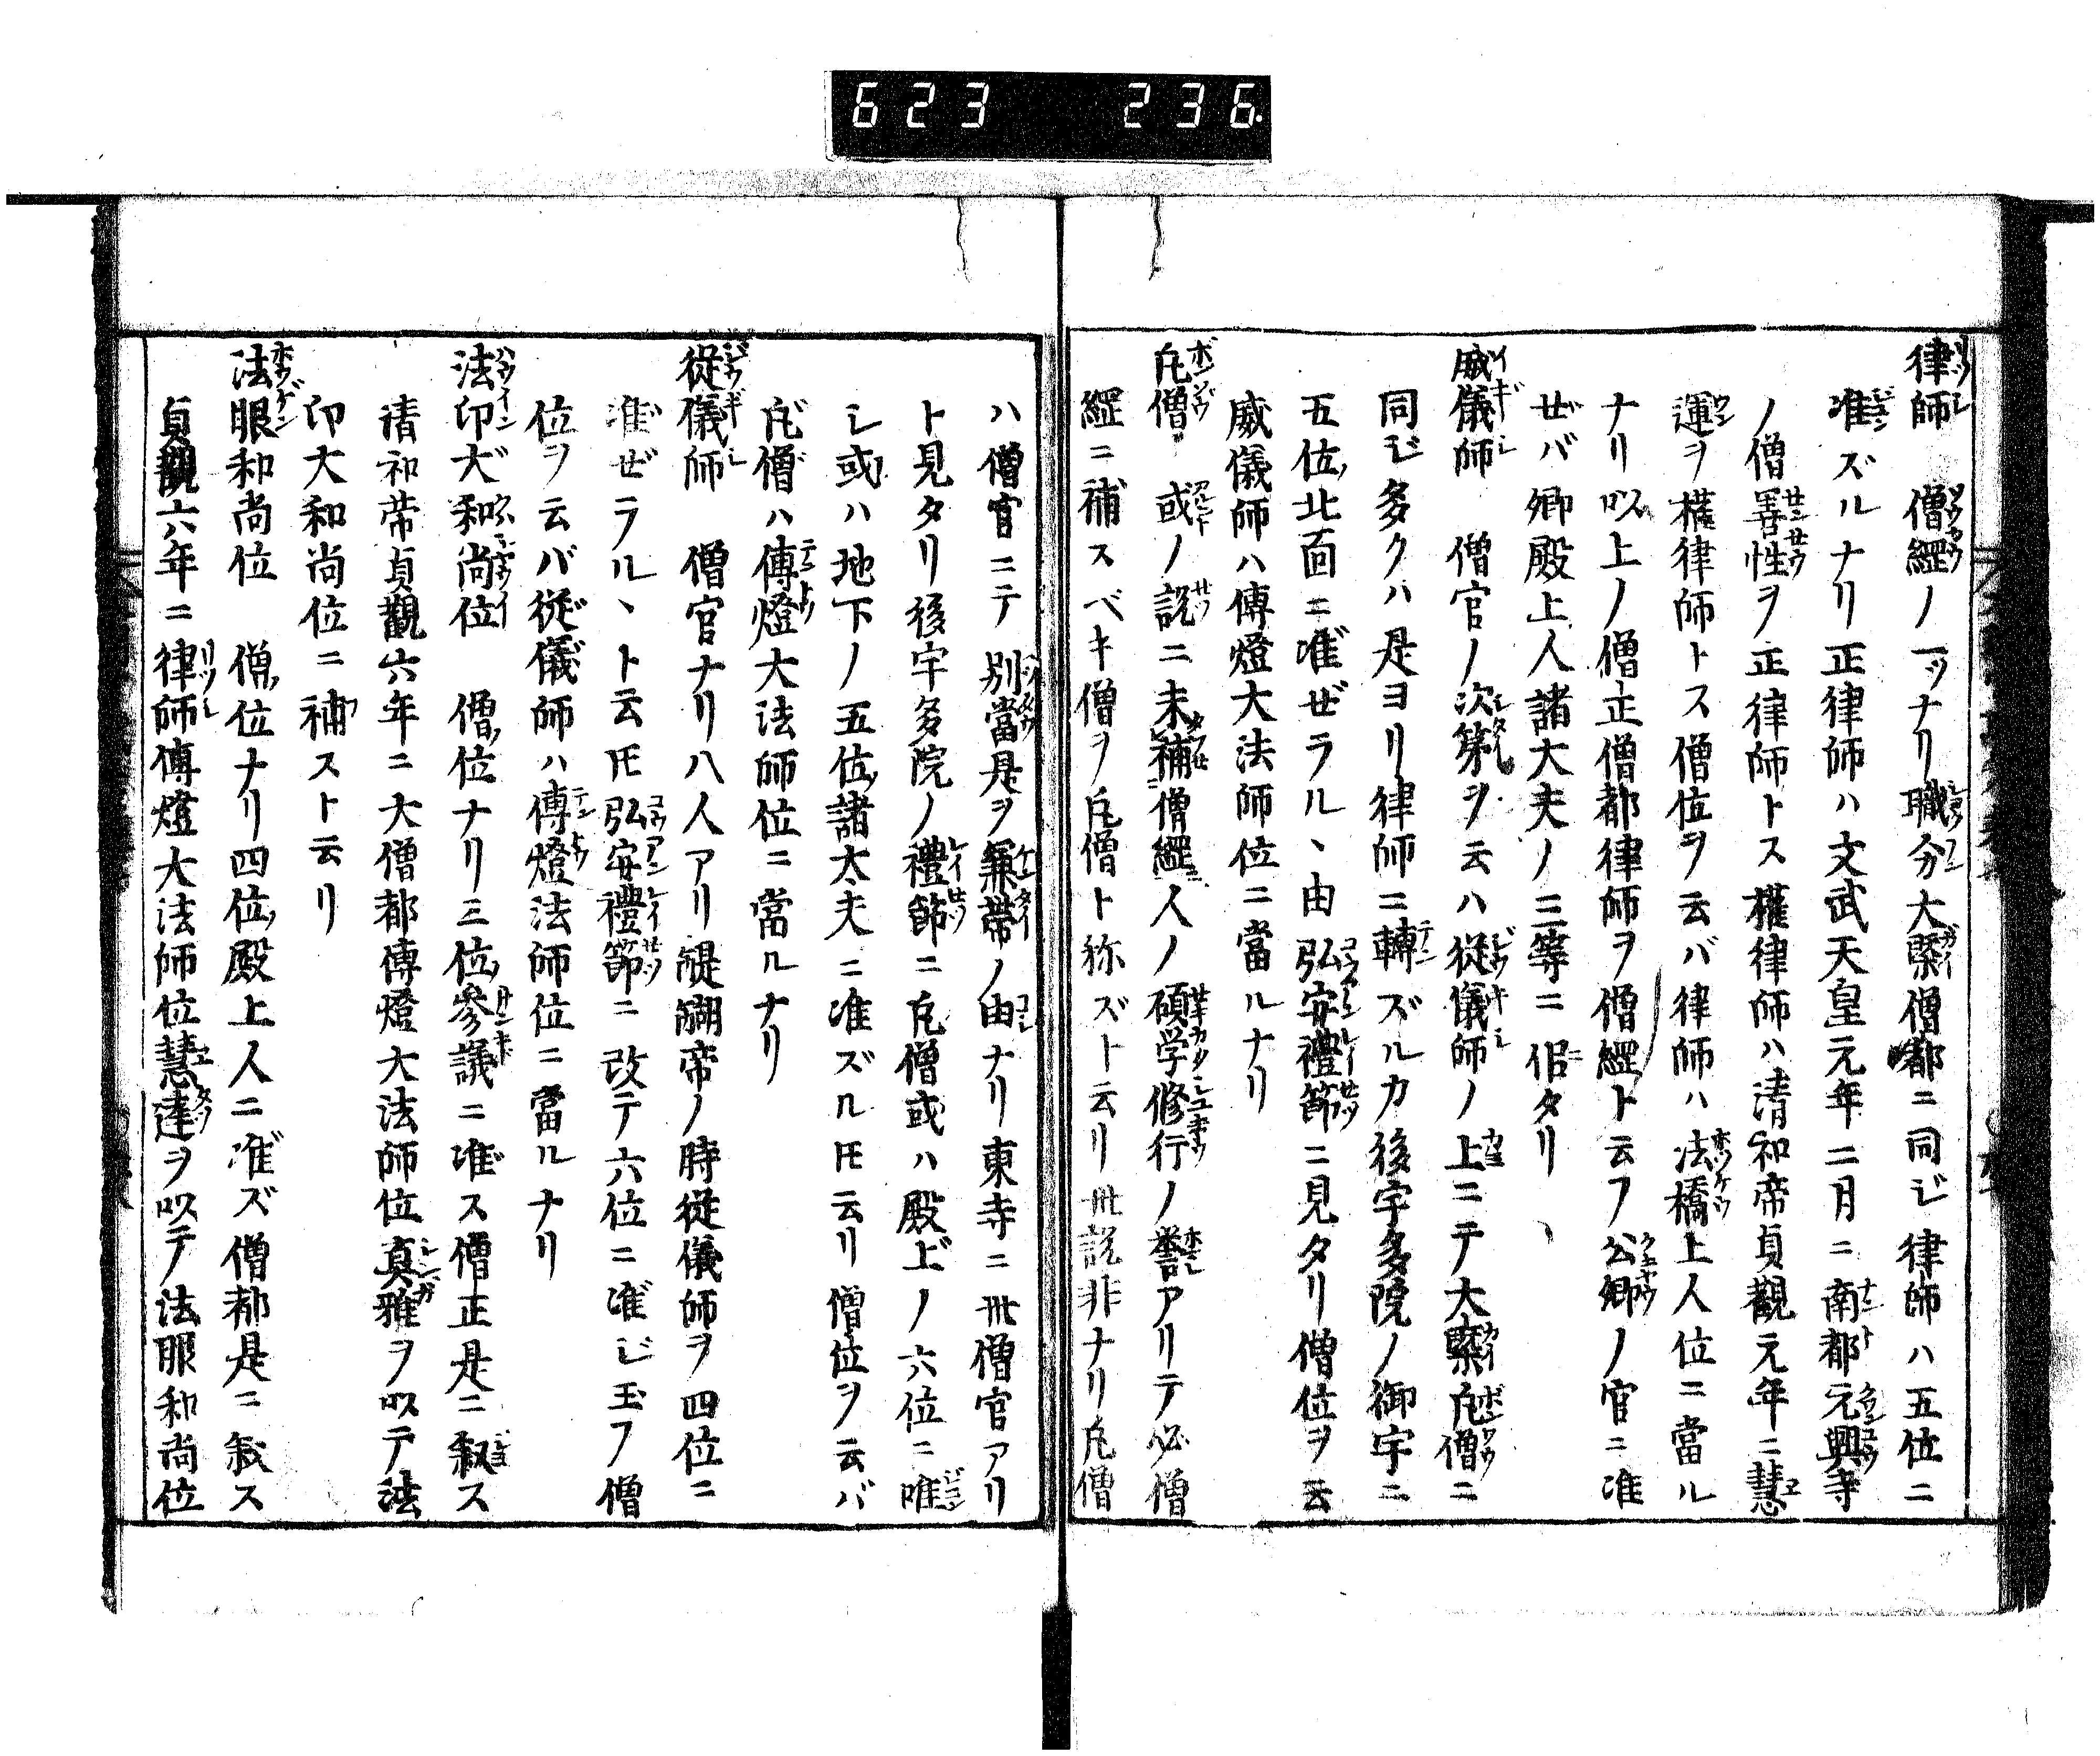 623 236.
律師 僧綱ノ一ツナリ職分大槩僧都ニ同ジ律師ハ五位ニ
准ズルナリ正律師ハ文武天皇元年二月ニ南都元興寺
ノ僧善性ヲ正律師トス權律師ハ清和帝貞觀元年ニ慧
運ヲ權律師トス僧位ヲ云バ律師ハ法橋上人位ニ當ル
ナリ以上ノ僧正僧都律師ヲ僧綱ト云フ公卿ノ官ニ准
ゼバ卿殿上人諸大夫ノ三等ニ似タリ
威儀師 僧官ノ次第ヲ云ハ從儀師ノ上ニテ大槩凡僧ニ
同ジ多クハ是ヨリ律師ニ轉ズルカ後宇多院ノ御宇ニ
五位北面ニ准ゼラルヽ由弘安禮節ニ見タリ僧位ヲ云
威儀師ハ傳燈大法師位ニ當ルナリ
凡僧 或ノ説ニ未補僧綱人ノ碩学修行ノ誉アリテ必僧
綱ニ補スベキ僧ヲ凡僧ト称ズト云リ此説非ナリ凡僧
ハ僧官ニテ別當是ヲ兼帶ノ由ナリ東寺ニ此僧官アリ
ト見タリ後宇多院ノ禮節ニ凡僧或ハ殿上ノ六位ニ唯
シ或ハ地下ノ五位諸太夫ニ准ズルトモ云リ僧位ヲ云バ
凡僧ハ傳燈大法師位ニ當ルナリ
從儀師 僧官ナリ八人アリ醍醐帝ノ時從儀師ヲ四位ニ
准ゼラルヽト云トモ弘安禮節ニ改テ六位ニ准ジ玉フ僧
位ヲ云バ從儀師ハ傳燈法師位ニ當ルナリ
法印大和尚位 僧位ナリ三位參議ニ准ス僧正是ニ叙ス
清和帝貞觀六年ニ大僧都傳燈大法師位真雅ヲ以テ法
印大和尚位ニ補ストス云リ
法眼和尚位 僧位ナリ四位殿上人ニ准ズ僧都是ニ叙ス
貞觀六年ニ律師傳燈大法師位慧達ヲ以テ法眼和尚位